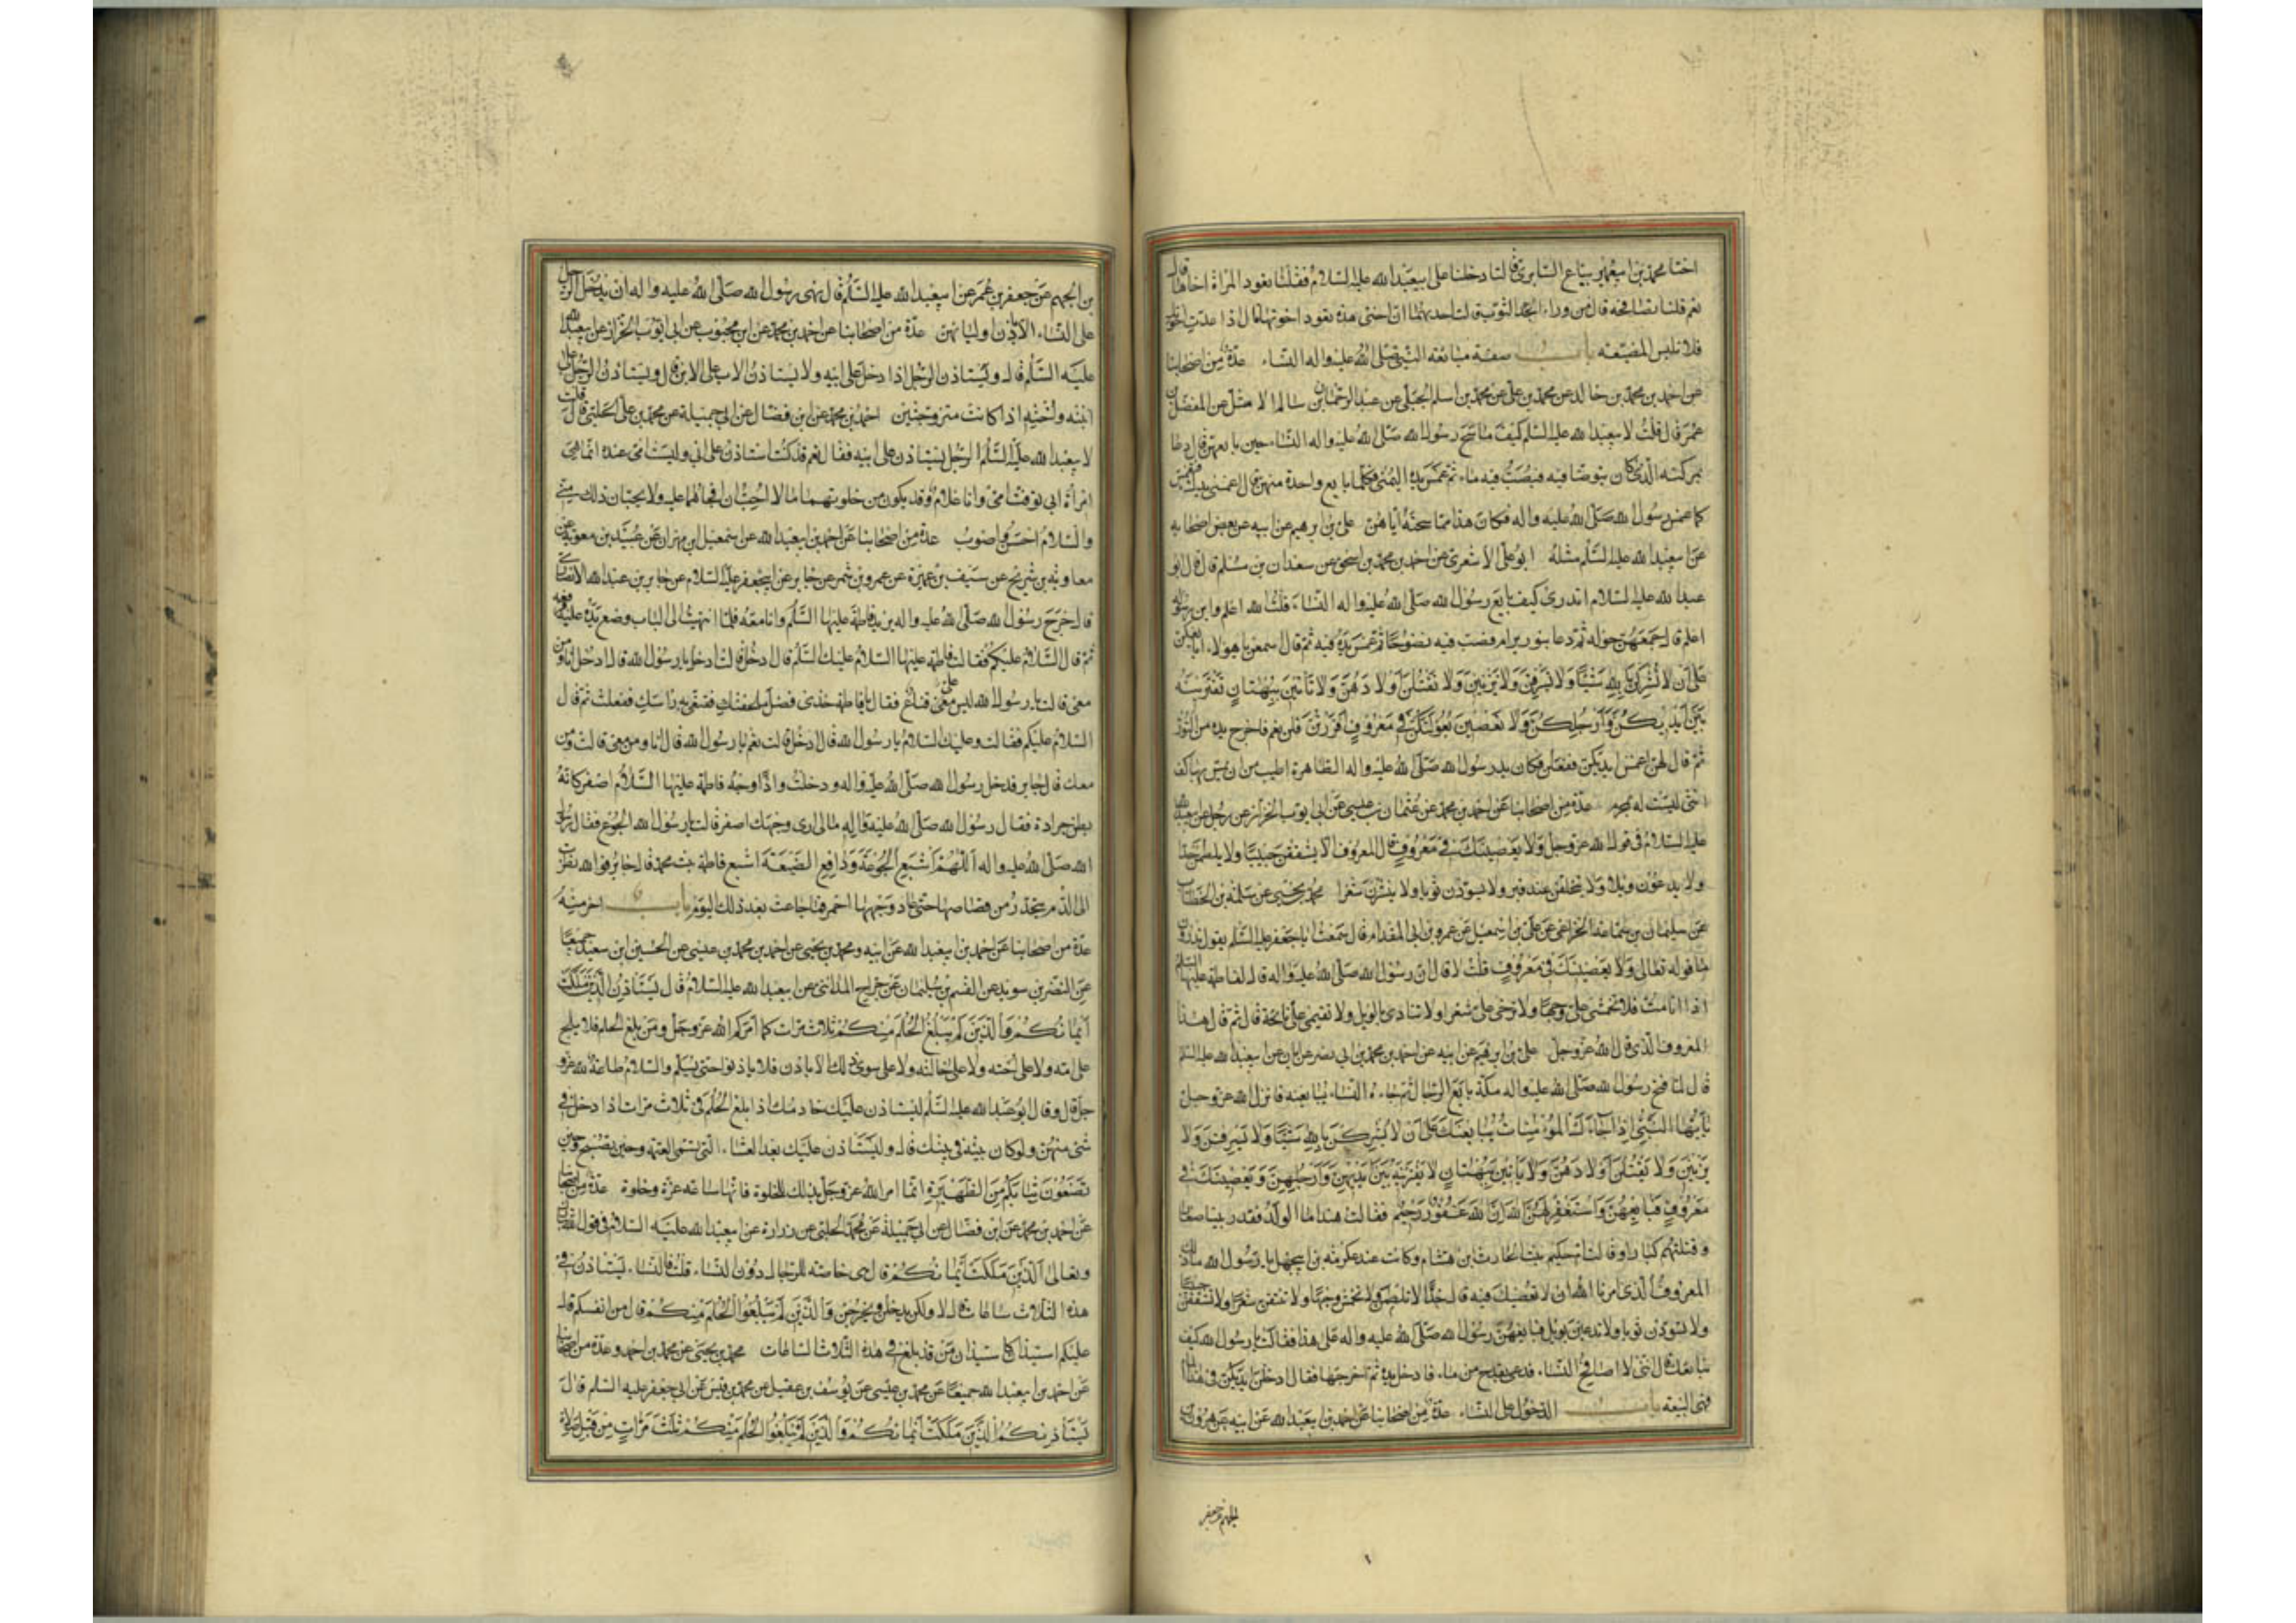 اختا محمد بن ابيعمير بياع السابري قالتا دخلنا على ابيعبد الله عليه السلام فقلنا تعود المراة اخاها قال
نعم قلنا تصافحه قال من وراء الثوب قالت احديهما ان اختى هذه تعود اخوتها قال اذا عدت اخوتك
فلا تلبس المصبغه باب صفة مبايعة النبي صلى الله عليه واله النساء عدة من اصحابنا
عن احمد بن محمد بن خالد عن محمد بن على عن محمد بن اسلم الجبلى عن عبد الرحمان بن سالم الاشل عن المفضل بن
عمر قال قلت لابيعبد الله عليه السلم كيف ماسح رسول الله صلى الله عليه واله النساء حين بايعهن قال دعا
بمركنه الذى كان يتوضا فيه فصب فيه ماء ثم غمس يده اليمنى فكلما بايع واحدة منهن قال اغمسى يدك فتغمس
كما غمس رسول الله صلى الله عليه واله فكان هذا مماسحته اياهن على بن ابرهيم عن ابيه عن بعض اصحابه
عن ابيعبد الله عليه السلم مثله ابو على الاشعرى عن احمد بن محمد بن اسحق عن سعدان بن مسلم قال قال ابو
عبد الله عليه السلام اتدرى كيف بايع رسول الله صلى الله عليه واله النساء قلت الله اعلم وابن رسوله
اعلم قال جمعهن حوله ثم دعا بتور برام فصب فيه نضوحا ثم غمس يده فيه ثم قال اسمعن يا هولاء ابايعكن
على ان لا تشركن بالله شيئا ولا تسرقن ولا تزنين ولا تقتلن اولادهن ولا تاتين ببهتان تفترينه
بين ايديكن وارجلكن ولا تعصين بعولتكن في معروف اقررتن قلن نعم فاخرج يده من التور
ثم قال لهن اغمسن ايديكن ففعلن فكان يد رسول الله صلى الله عليه واله الطاهرة اطيب من ان يمس بها كف
انثى ليست له بمحرم عدة من اصحابنا عن احمد بن محمد عن عثمان بن عيسى عن ابى ايوب الخزاز عن رجل عن ابيعبد الله
عليه السلام فى قول الله عز وجل ولا يعصينك في معروف قال المعروف ان لا يشققن جيبا ولا يلطمن خدا
ولا يدعون ويلا ولا يتخلفن عند قبر ولا يسودن ثوبا ولا ينشرن شعرا محمد بن يحيى عن سلمة بن الخطاب
عن سليمان بن سماعة الخزاعى عن على بن اسمعيل عن عمرو بن ابى المقدام قال سمعت ابا جعفر عليه السلم يقول تدرون
ما قوله تعالى ولا يعصينك في معروف قلت لا قال ان رسول الله صلى الله عليه واله قال لفاطمة عليها السلم
اذا انا مت فلا تخمشى على وجها ولا ترخى على شعرا ولا تنادى بالويل ولا تقيمى على نائحة قال ثم قال هذا
المعروف الذى قال الله عز وجل على بن ابرهيم عن ابيه عن احمد بن محمد بن ابى نصر عن ابان عن ابيعبد الله عليه السلم
قال لما فتح رسول الله صلى الله عليه واله مكة بايع الرجال ثم جاءه النساء يبايعنه فانزل الله عز وجل
يا ايها النبي اذا جاءك المؤمنات يبايعنك على ان لا يشركن بالله شيئا ولا يسرقن ولا
يزنين ولا يقتلن اولادهن ولا ياتين ببهتان لا يفترينه بين ايديهن وارجلهن ولا يعصينك في
معروف فبايعهن واستغفر لهن الله ان الله غفور رحيم فقالت هند اما الولد فقد ربينا صغارا
وقتلتهم كبارا وقالت ام حكيم بنت الحارث بن هشام وكانت عند عكرمة بن ابيجهل يا رسول الله ما ذلك
المعروف الذى امرنا الله ان لا نعصيك فيه قال لا تلطمن خدا ولا تخمشن وجها ولا تنتفن شعرا ولا تشققن جيبا
ولا تسودن ثوبا ولا تدعين بويل فبايعهن رسول الله صلى الله عليه واله على هذا فقالت يا رسول الله كيف
نبايعك قال اننى لا اصافح النساء فدعى بقدح من ماء فادخل يده ثم اخرجها فقال ادخلن ايديكن في هذا الماء
فهى البيعة باب الدخول على النساء عدة من اصحابنا عن احمد بن ابيعبد الله عن ابيه عن هرون بن
الجهم عن جعفر
بن الجهم عن جعفر بن عمر عن ابيعبد الله عليه السلم قال نهى رسول الله صلى الله عليه واله ان يدخل الرجال
على النساء الا باذن اوليائهن عدة من اصحابنا عن احمد بن محمد عن ابن محبوب عن ابى ايوب الخزاز عن ابيعبد الله
عليه السلم قال ويستاذن الرجل اذا دخل على ابيه ولا يستاذن الاب على الابن قال ويستاذن الرجل على
ابنته واخته اذا كانت متزوجتين احمد بن محمد عن ابن فضال عن ابى جميلة عن محمد بن على الحلبى قال قلت
لابيعبد الله عليه السلم الرجل يستاذن على ابيه فقال نعم قد كنت استاذن على ابى وليست امى عنده انما هى
امرأة ابى توفت امى وانا غلام وقد يكون من خلوتهما ما لا احب ان افجاهما عليه ولا يحبان ذلك منى
والسلام احسن واصوب عدة من اصحابنا عن احمد بن ابيعبد الله عن اسمعيل بن مهران عن عبيد بن معوية بن
معاوية بن شريح عن سيف بن عميرة عن عمرو بن شمر عن جابر عن ابيجعفر عليه السلام عن جابر بن عبد الله الانصارى
قال خرج رسول الله صلى الله عليه واله يريد فاطمة عليها السلم وانا معه فلما انتهيت الى الباب وضع يده عليه فدفعه
ثم قال السلام عليكم فقالت فاطمة عليها السلام عليك السلم قال ادخل قالت ادخل يا رسول الله قال ادخل انا ومن
معى قالت يا رسول الله ليس على قناع فقال يا فاطمة خذى فضل ملحفتك فقنعى به راسك ففعلت ثم قال
السلام عليكم فقالت وعليك السلام يا رسول الله قال ادخل قالت نعم يا رسول الله قال انا ومن معى قالت ومن
معك قال جابر فدخل رسول الله صلى الله عليه واله ودخلت واذا وجه فاطمة عليها السلام اصفر كانه
بطن جرادة فقال رسول الله صلى الله عليه واله مالى ارى وجهك اصفر قالت يا رسول الله الجوع فقال رسول
الله صلى الله عليه واله اللهم اشبع الجوعة ودافع الضيعة اشبع فاطمة بنت محمد قال جابر فوالله لنظرت
الى الدم ينحدر من قصاصها حتى عاد وجهها احمر فما جاعت بعد ذلك اليوم باب اخر منه
عدة من اصحابنا عن احمد بن ابيعبد الله عن ابيه ومحمد بن يحيى عن احمد بن محمد بن عيسى عن الحسين بن سعيد جميعا
عن النضر بن سويد عن القسم بن سليمان عن جراح المدائنى عن ابيعبد الله عليه السلام قال ليستاذن الذين ملكت
ايمانكم والذين لم يبلغ الحلم منكم ثلاث مرات كما امركم الله عز وجل ومن بلغ الحلم فلا يلج
على امه ولا على اخته ولا على خالته ولا على سوى ذلك الا باذن فلا ياذنوا حتى يسلم والسلام طاعة لله عز و
جل قال وقال ابو عبد الله عليه السلم ليستاذن عليك خادمك اذا بلغ الحلم فى ثلاث مرات اذا دخل في
شئ منهن ولو كان بيته في بيتك قال وليستاذن عليك بعد العشاء التى تسمى العتمة وحين تصبح وحين
تضعون ثيابكم من الظهيرة انما امر الله عز وجل بذلك للخلوة فانها ساعة غرة وخلوة عدة من اصحابنا
عن احمد بن محمد عن ابن فضال عن ابى جميلة عن محمد الحلبى عن زرارة عن ابيعبد الله عليه السلام في قول الله تبارك
وتعالى الذين ملكت ايمانكم قال هى خاصة للرجال دون النساء قلت فالنساء ليستاذن في
هذه الثلاث ساعات قال لا ولكن يدخلن ويخرجن والذين لم يبلغوا الحلم منكم قال من انفسكم قال
عليكم استيذان كاستيذان من قد بلغ في هذه الثلاث الساعات محمد بن يحيى عن محمد بن احمد وعدة من اصحابنا
عن احمد بن ابيعبد الله جميعا عن محمد بن عيسى عن يوسف بن عقيل عن محمد بن قيس عن ابى جعفر عليه السلم قال
ليستاذنكم الذين ملكت ايمانكم والذين لم يبلغوا الحلم منكم ثلث مرات من قبل صلاة